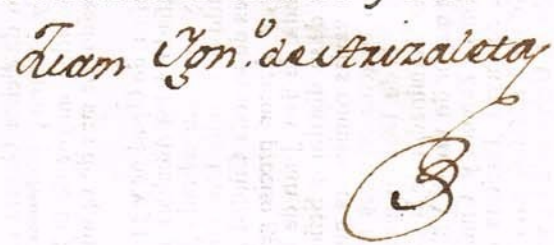 Juan Ygn.º de Arizaleta